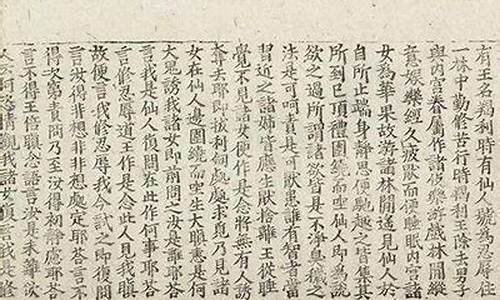 有王名羯利時有仙人號為忍辱住
一林中勤修苦行時羯利王除去男子
與內宮眷屬作諸伎樂遊戲林間縱
意娛樂經久疲厭而便睡眠內宮諸
女為華果故游諸林間遙見仙人於
自所止端身靜思便馳趣之皆集其
所到已頂禮圍繞而坐仙人即為說
欲之過所謂諸欲皆是不淨臭穢之
法是可呵責是可厭患誰有智者當
習近之諸姊皆應生厭捨離王從睡
覺不見諸女便作是念將無有人誘
奪去耶即拔利劍處處求覓乃見諸
女在仙人邊圍繞而坐生大瞋恚是何
大鬼誘我諸女即前問之汝是誰耶答
言我是仙人復問在此作何事耶答
言修忍辱道王作是念此人見我瞋
故便言我修忍辱我今試之即復問
言汝得非想非非想處定耶答言不
得次第責問乃至汝得初靜慮耶答
言不得王倍瞋忿語言汝是未離欲
人云何恣情觀我諸女復言我是修